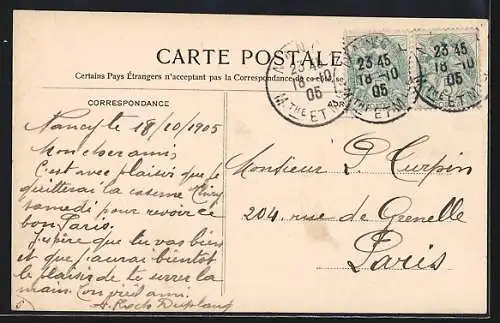 CARTE POSTALE
Certains Pays Étrangers n'acceptant pas la Correspondance de ce côté, se
CORRESPONDANCE
Nancy le 18/10/1905
Mon cher ami,
C'est avec plaisir que je
quitterai la caserne
samedi pour revoir ce
bon Paris.
J'espère que tu vas bien
et que j'aurai bientôt
le plaisir de te serrer la
main. Ton vieil ami.
Monsieur P. Turpin
204, rue de Grenelle
Paris
23 45
18 - 10
05
Mthe ET M
23 45
18 - 10
05
ET M
23 45
18 - 10
05
ET M